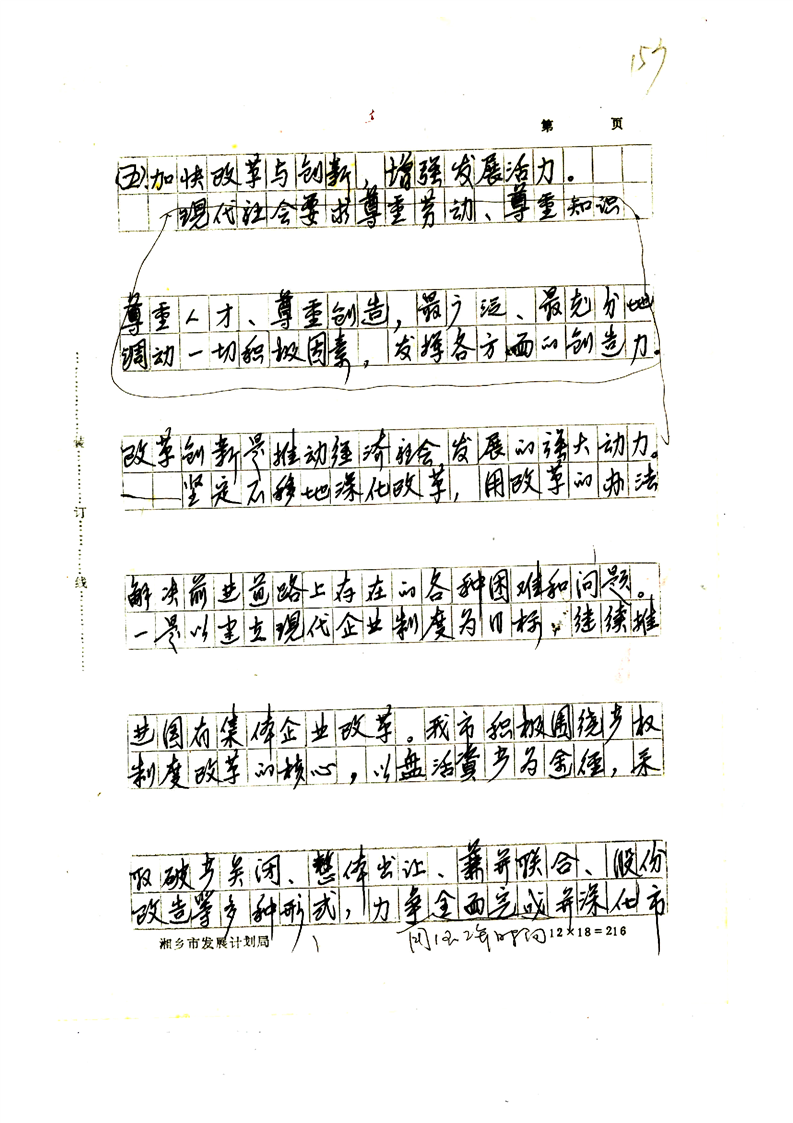 157
第 页
(五)加快改革与创新，增强发展活力。
现代社会要求尊重劳动、尊重知识、
尊重人才、尊重创造，最广泛、最充分地
调动一切积极因素，发挥各方面的创造力。
改革创新是推动经济社会发展的强大动力。
坚定不移地深化改革，用改革的办法
解决前进道路上存在的各种困难和问题。
一是以建立现代企业制度为目标，继续推
进国有集体企业改革。我市积极围绕产权
制度改革的核心，以盘活资产为途径，采
取破产关闭、整体出让、兼并联合、股份
改造等多种形式，力争全面完成并深化市
用 2年时间
湘乡市发展计划局
12×18=216
装
订
线